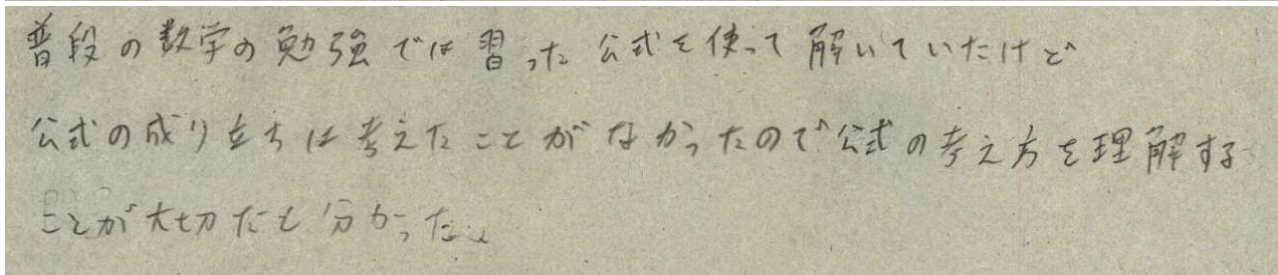 普段の数学の勉強では習った公式を使って解いていたけど
公式の成り立ちは考えたことがなかったので公式の考え方を理解する
ことが大切だと分かった。